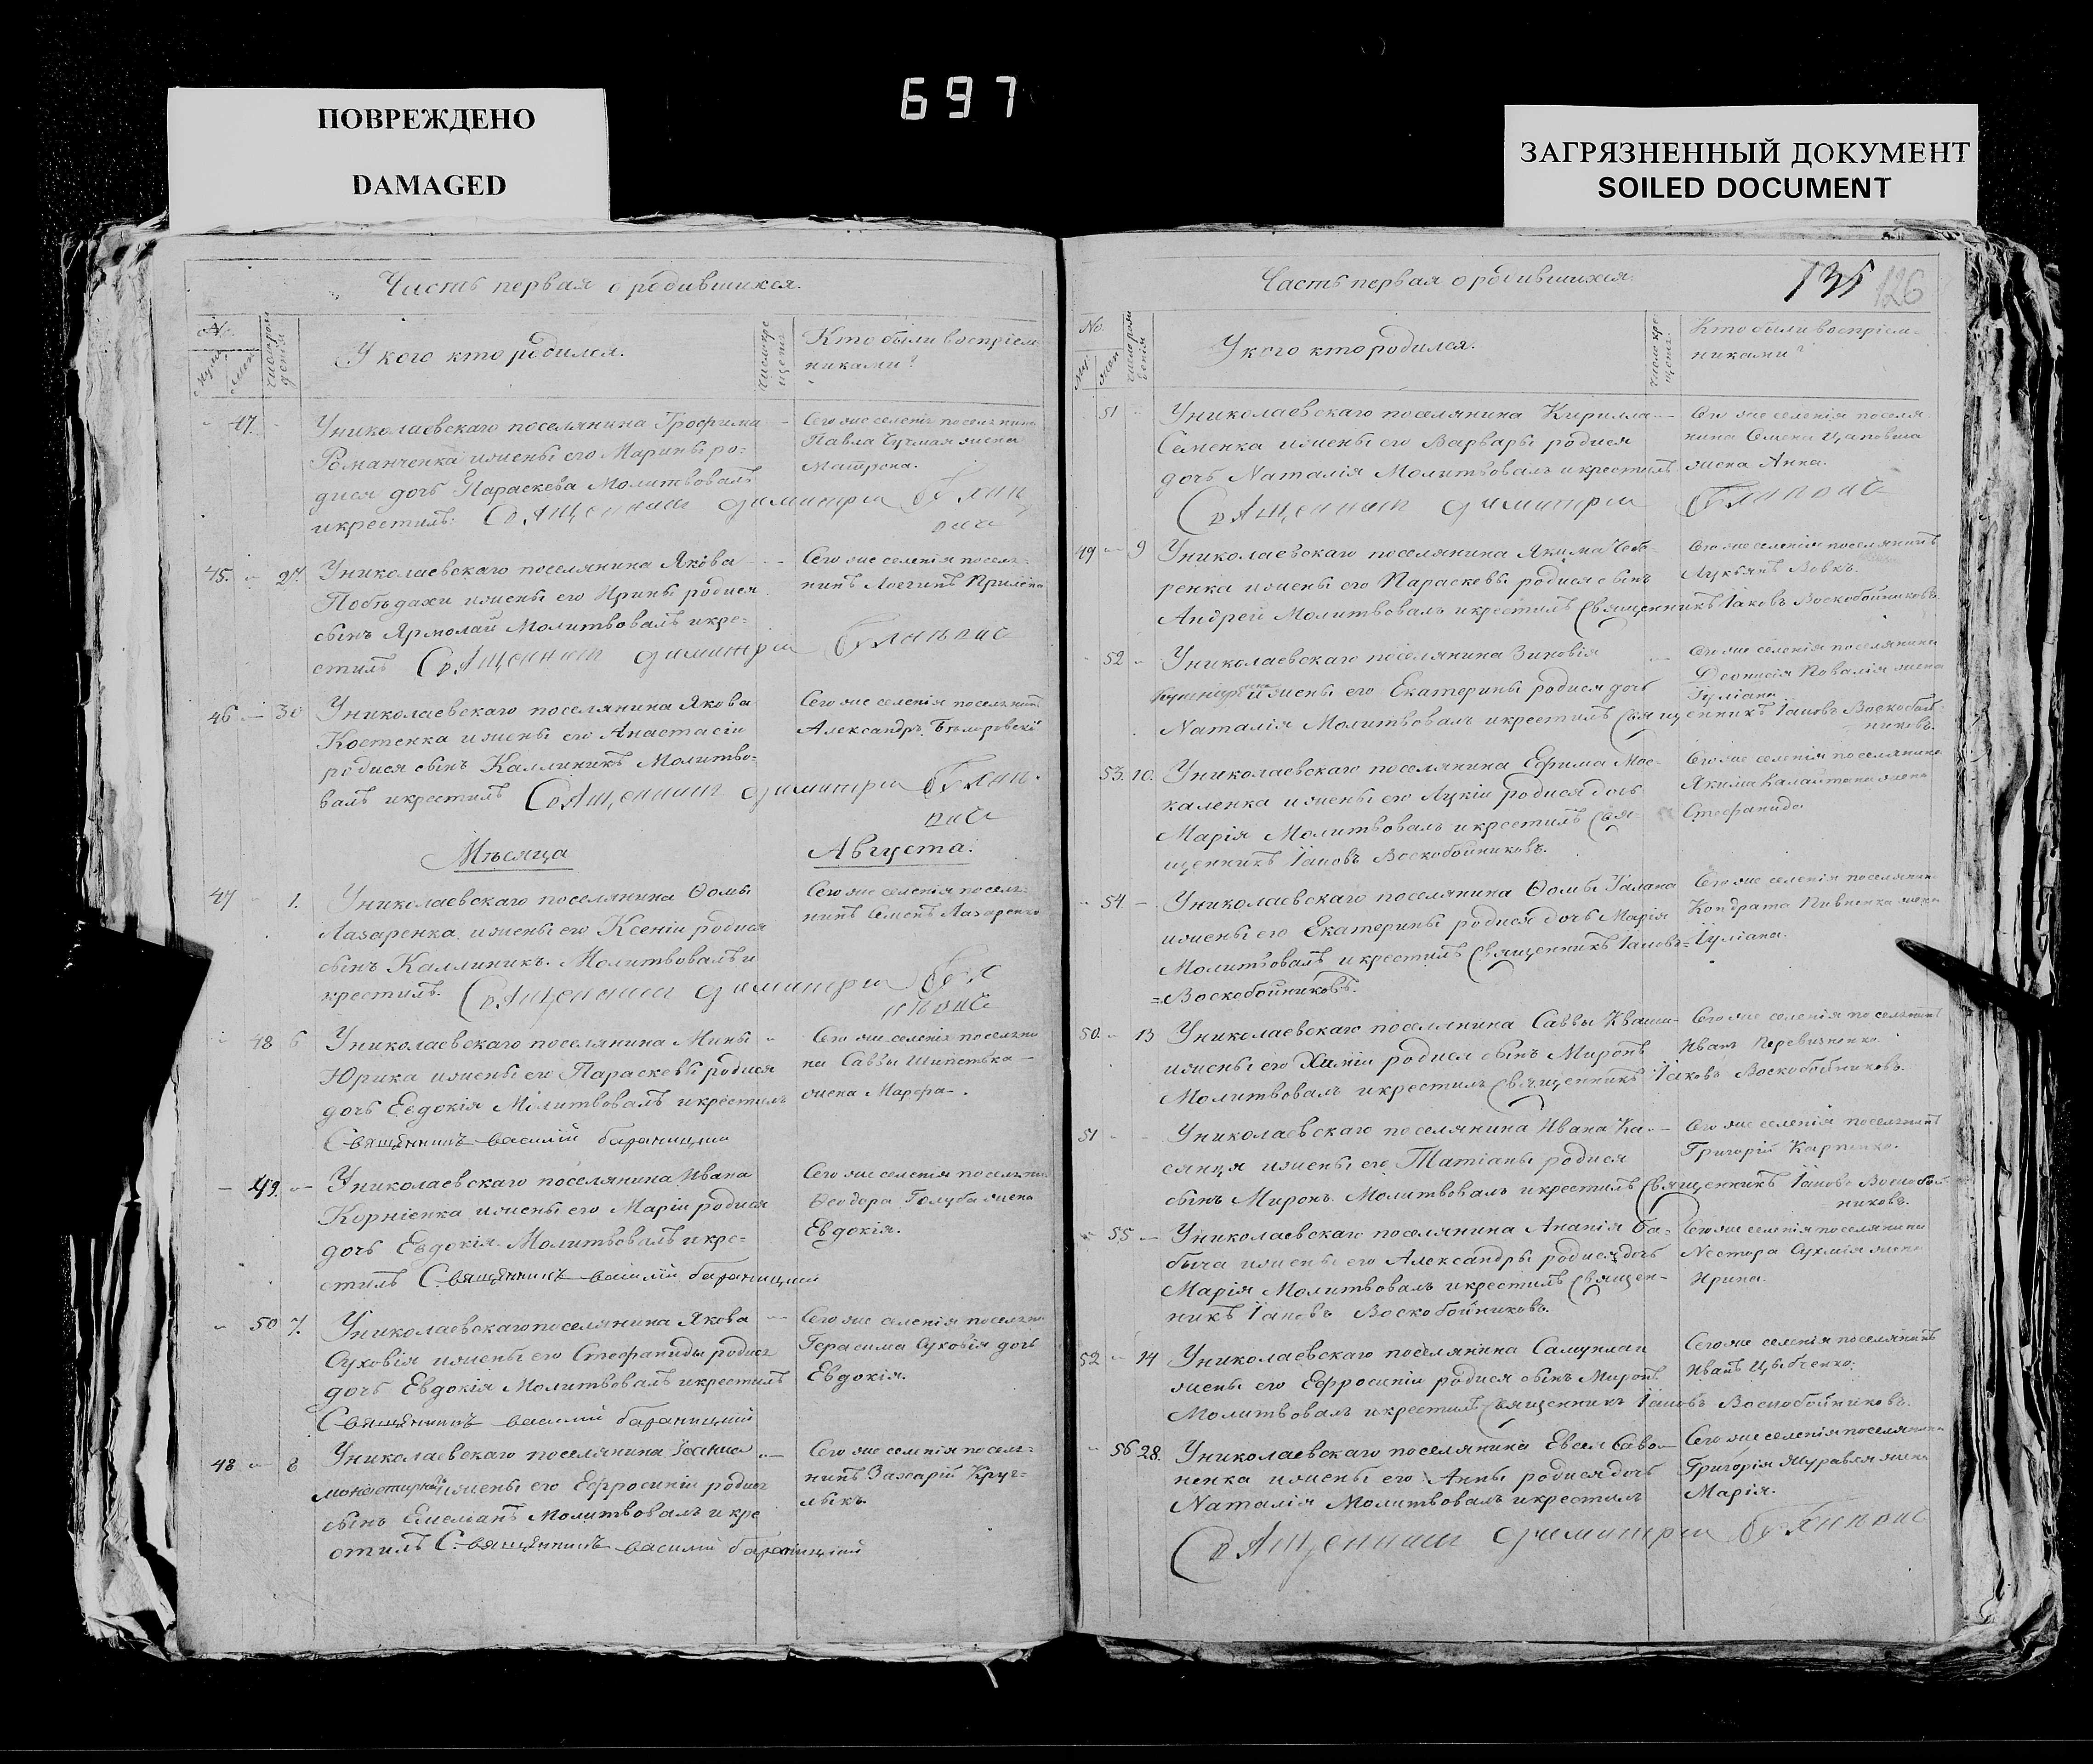 697
ПОВРЕЖДЕНО
DAMAGED
ЗАГРЯЗНЕННЫЙ ДОКУМЕНТ
SOILED DOCUMENT
Часть первая о родившихся.
№.
У кого кто родился.
Кто были воспріем-
никами?
47.
Униколаевскаго поселянина Трофима
Романченка ижены его Марины ро-
дися дочь Параскева Молитвовалъ
икрестилъ: Священникъ Димитрій
Сего же селенія поселянина
Павла жена
Матрона.
45. 27.
Униколаевскаго поселянина Якова
Побѣдахи ижены его Ирины родися
сынъ Ярмолай Молитвовалъ икре-
стилъ Священникъ Димитрій
Сего же селенія поселя-
нинъ Логгинъ
46 30
Униколаевскаго поселянина Якова
Костенка ижены его Анастасіи
родися сынъ Каллиникъ Молитво-
валъ икрестилъ Священникъ Димитрій
Сего же селенія поселянинъ
Александръ
Мѣсяца Августа.
47 1.
Униколаевскаго поселянина Ѳомы
Лазаренка ижены его Ксеніи родися
сынъ Каллиникъ. Молитвовалъ и
крестилъ. Священникъ Димитрій
Сего же селенія поселя-
нинъ Семенъ Лазаренко
48 6
Униколаевскаго поселянина Мины
Юрика ижены его Параскевы родися
дочь Евдокія Молитвовалъ икрестилъ
Священникъ василій бараницкій
Сего же селенія поселяни
на Саввы
жена Марфа.
49.
Униколаевскаго поселянина Ивана
Корніенка ижены его Маріи родися
дочь Евдокія. Молитвовалъ икре-
стилъ Священникъ василій бараницкій
Сего же селенія поселянина
Ѳеодора Голуба жена
Евдокія.
50 7.
Униколаевскаго поселянина Якова
Суховія ижены его Стефаниды родися
дочь Евдокія Молитвовалъ икрестилъ
Священникъ василій бараницкій
Сего же селенія поселянина
Герасима Суховія дочь
Евдокія.
48 8
Униколаевскаго поселянина
ижены его Ефросиніи родися
сынъ Емеліанъ Молитвовалъ и кре
стилъ Священникъ василій бараницкій
Сего же селенія поселя-
нинъ Захарій Круг-
лыкъ
Часть первая о родившихся.
135 126
№.
У кого кто родился.
Кто были воспріем-
никами?
51
Униколаевскаго поселянина Кирилла
Семенка ижены его Варвары родися
дочь Наталія Молитвовалъ икрестилъ
Священникъ Димитрій
Сего же селенія поселя-
нина Семена
жена Анна.
49 9
Униколаевскаго поселянина Якима
ренка ижены его Параскевы родися сынъ
Андрей Молитвовалъ икрестилъ Священникъ Іаковъ Воскобойниковъ.
Сего же селенія поселянинъ
Лукьянъ Вовкъ.
52
Униколаевскаго поселянина Зиновія
ижены его Екатерины родися дочь
Наталія Молитвовалъ икрестилъ Священникъ Іаковъ Воскобой-
никовъ.
Сего же селенія поселянина
Деонисія Ковалія жена
Іуліана
53. 10.
Униколаевскаго поселянина Ефима Мос-
каленка ижены его Лукіи родися дочь
Марія Молитвовалъ икрестилъ Свя-
щенникъ Іаковъ Воскобойниковъ.
Сего же селенія поселянина
Якима жена
Стефанида
54.
Униколаевскаго поселянина Ѳомы Галана
ижены его Екатерины родися дочь Марія
Молитвовалъ икрестилъ Священникъ Іаковъ=
=Воскобойниковъ.
Сего же селенія поселянина
Кондрата Пивненка жена
Іуліана.
50. 13
Униколаевскаго поселянина Саввы Кваши
ижены его родися сынъ Миронъ
Молитвовалъ икрестилъ Священникъ Іаковъ Воскобойниковъ.
Сего же селенія поселянинъ
Иванъ
51
Униколаевскаго поселянина Ивана Ка-
сянця ижены его Татіаны родися
сынъ Миронъ. Молитвовалъ икрестилъ Священникъ Іаковъ Воскобой-
никовъ.
Сего же селенія поселянинъ
Григорій Карпенко.
55
Униколаевскаго поселянина Ананія Ба-
быча ижены его Александры родися дочь
Марія Молитвовалъ икрестилъ Священ-
никъ Іаковъ Воскобойниковъ.
Сего же селенія поселянина
Нестора Сухмія жена
Ирина.
52 14
Униколаевскаго поселянина
жены его Ефросиніи родися сынъ Миронъ
Молитвовалъ икрестилъ Священникъ Іаковъ Воскобойниковъ.
Сего же селенія поселянинъ
Иванъ
56 28.
Униколаевскаго поселянина Евсея Саво-
ненка ижены его Анны родися дочь
Наталія Молитвовалъ икрестилъ
Священникъ Димитрій
Сего же селенія поселянина
Григорія Журавля жена
Марія.